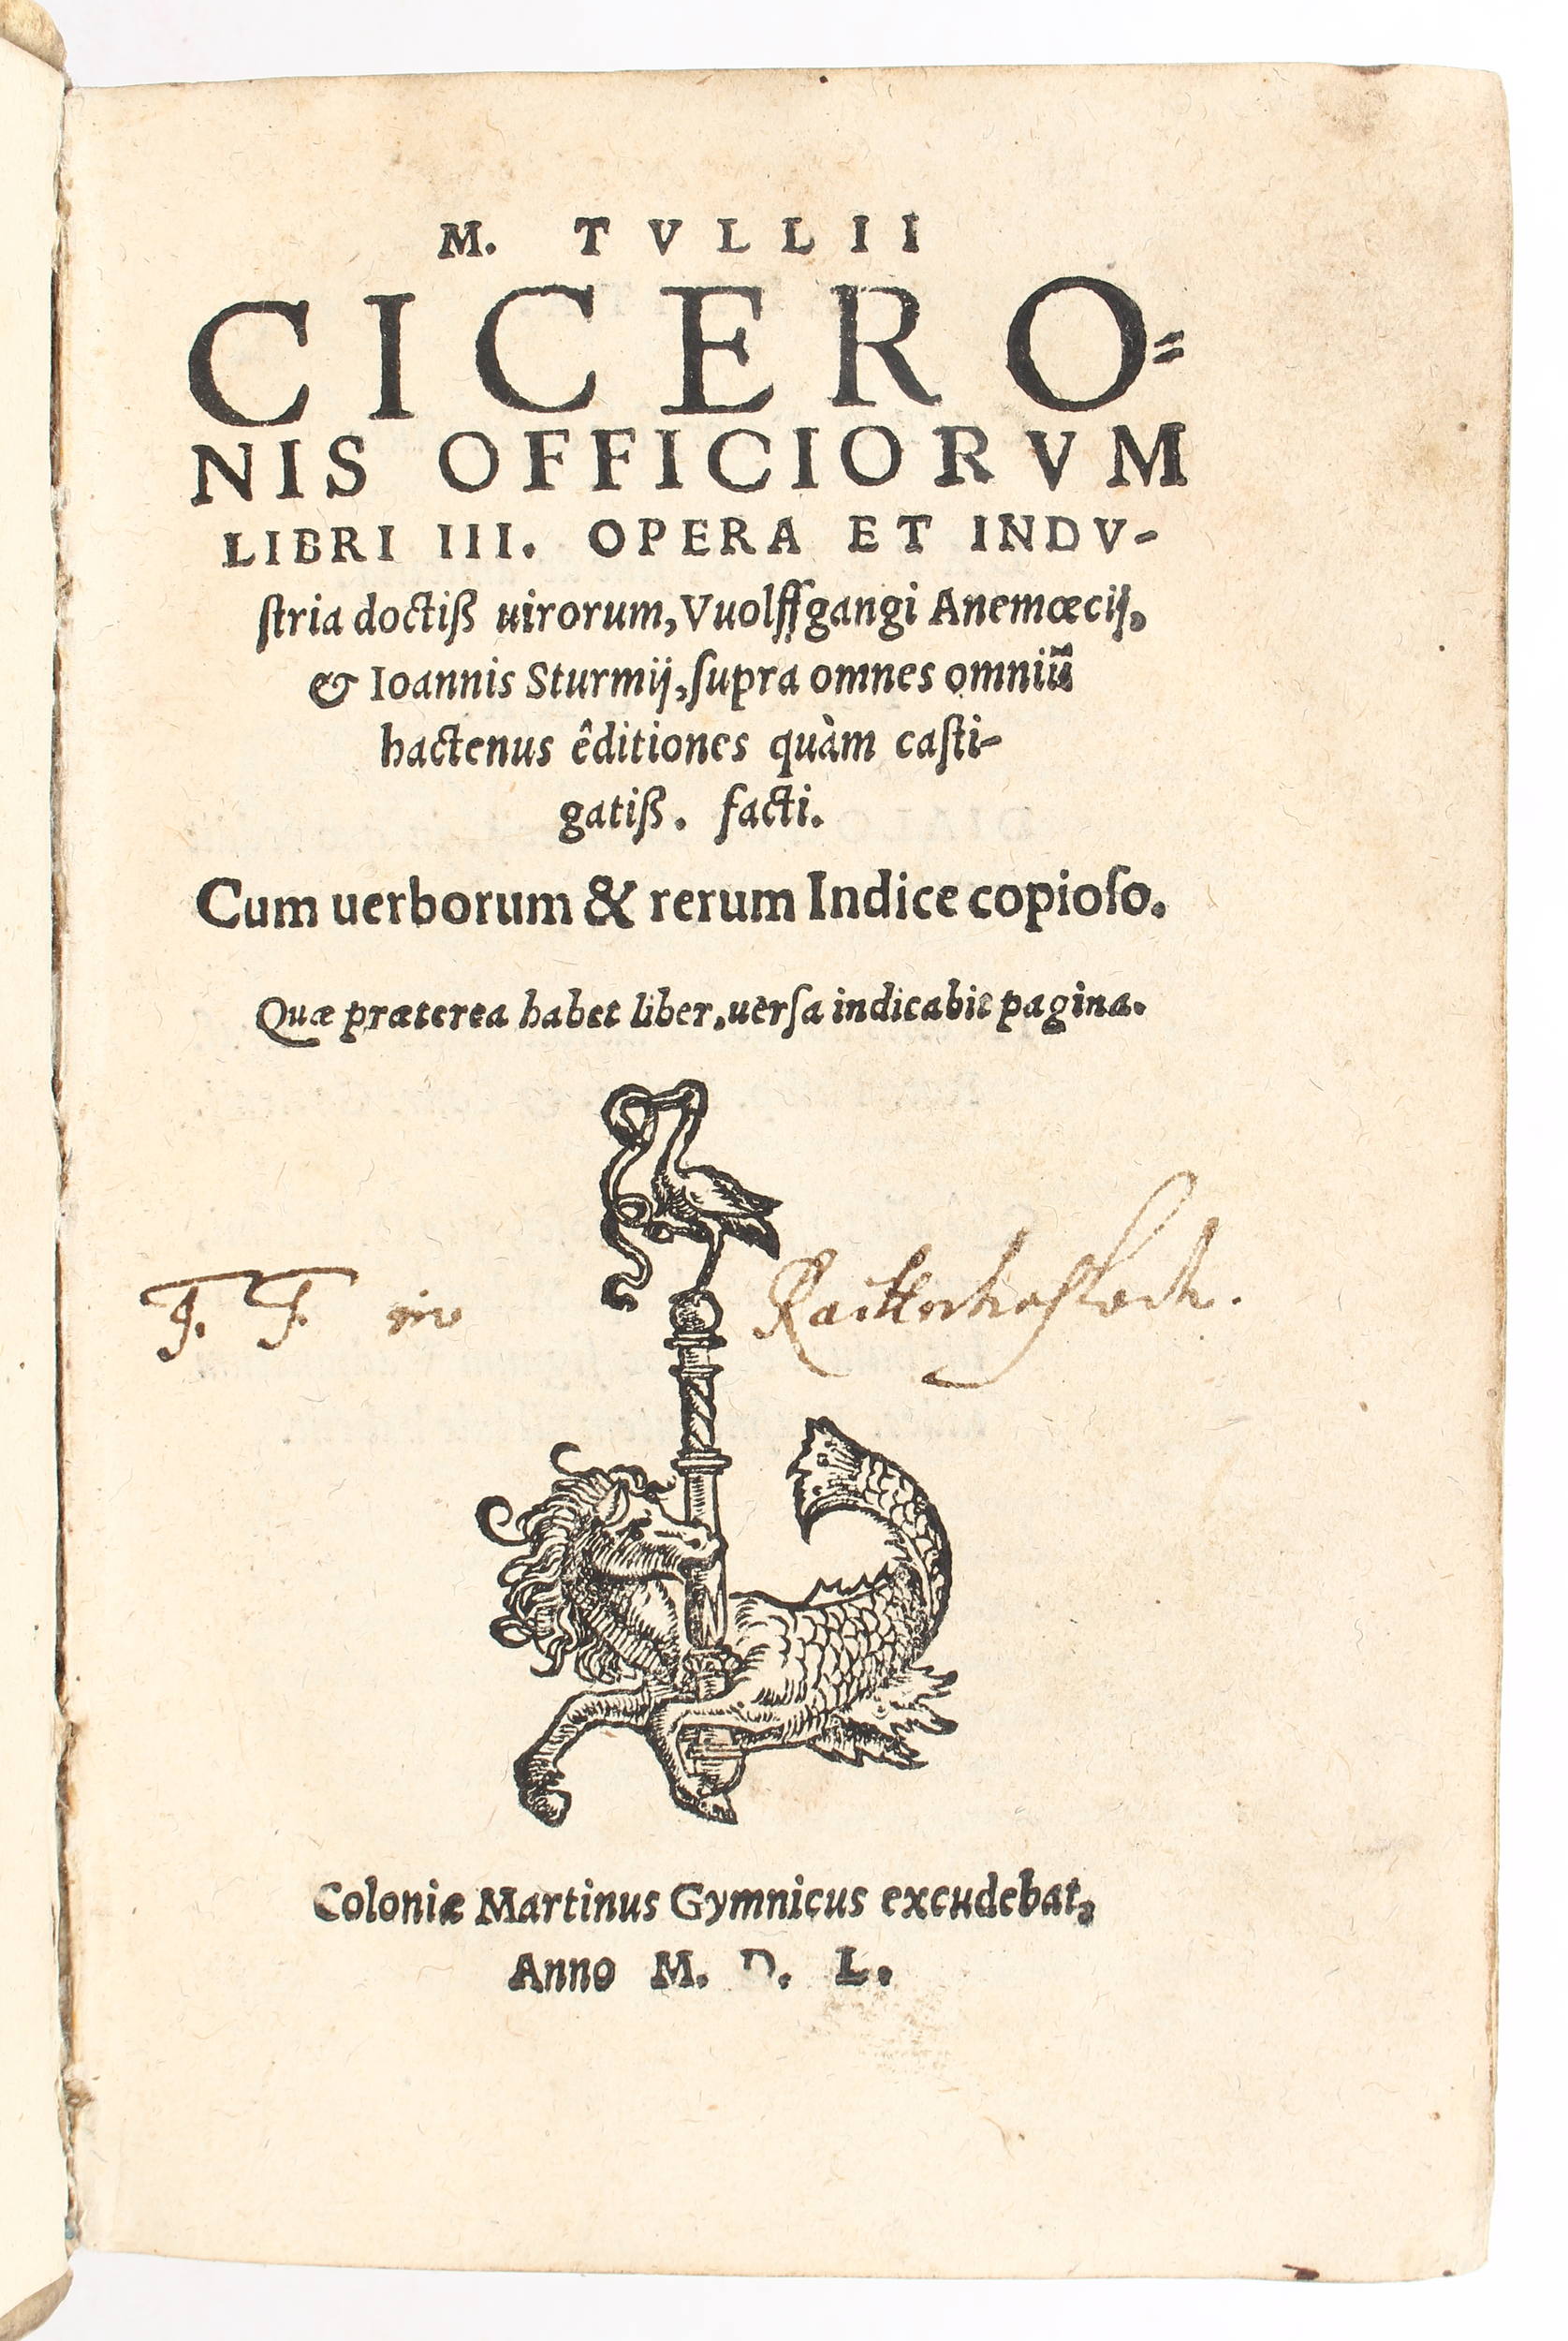 M. TVLLII
CICERO=
NIS OFFICIORVM
LIBRI III. OPERA ET INDV-
ſtria doctiß uirorum, Vuolffgangi Anemœcij,
& Ioannis Sturmij, ſupra omnes omniū
hactenus êditiones quàm caſti-
gatiß. facti.
Cum uerborum & rerum Indice copioſo.
Quæ præterea habet liber, uerſa indicabit pagina.
F. F. in Raittenhaſlach.
Coloniæ Martinus Gymnicus excudebat,
Anno M. D. L.